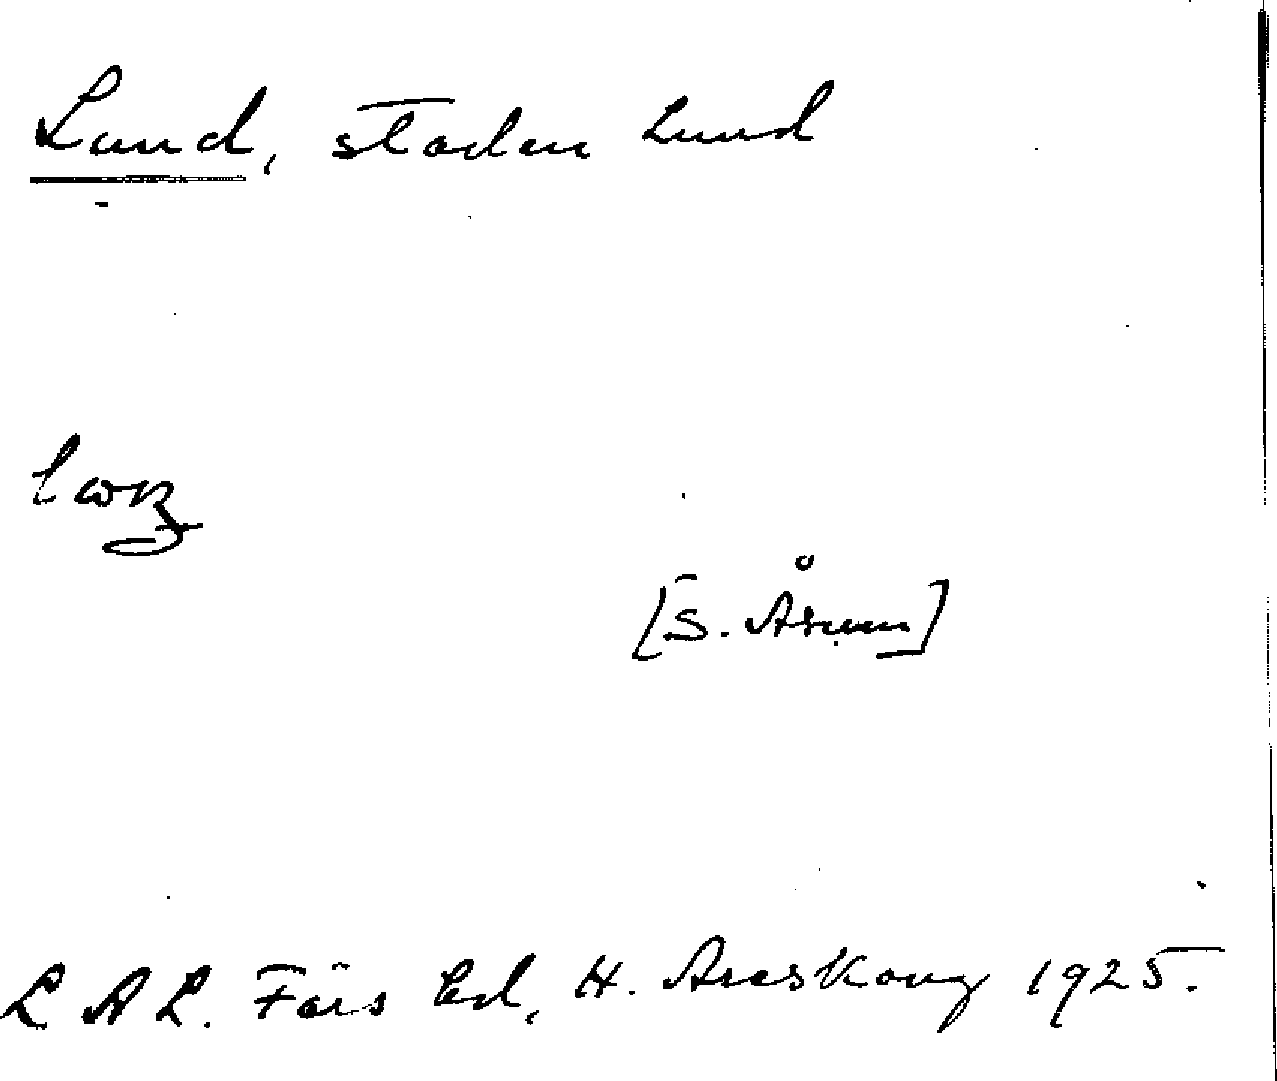 Laund, staden Lund
[S. Åsum]
L A L. Färs hd, H. Areskoug 1925.